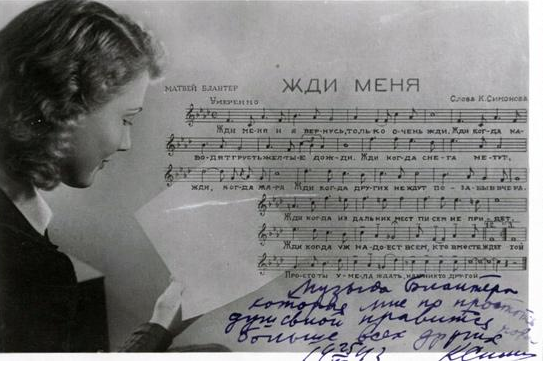 МАТВЕЙ БЛАНТЕР
ЖДИ МЕНЯ
Слова К. Симонова
Умеренно
Жди ме-ня и я вер-нусь, только о-чень жди. Жди ког-да на-
во-дит грусть жел-ты-е дож-ди. Жди ког-да сне-га ме-тут,
жди, ког-да жа-ра Жди ког-да дру-гих не ждут по-за-быв вчера.
Жди когда из дальних мест пи-сем не при-дет,
Жди когда уж на-до-ест всем, кто вместе ждет той
Про-сто ты у-ме-ла ждать, как никто дру-гой
Музыка Блантера
которая мне по простоте
душевной нравится
больше всех других
К Сим